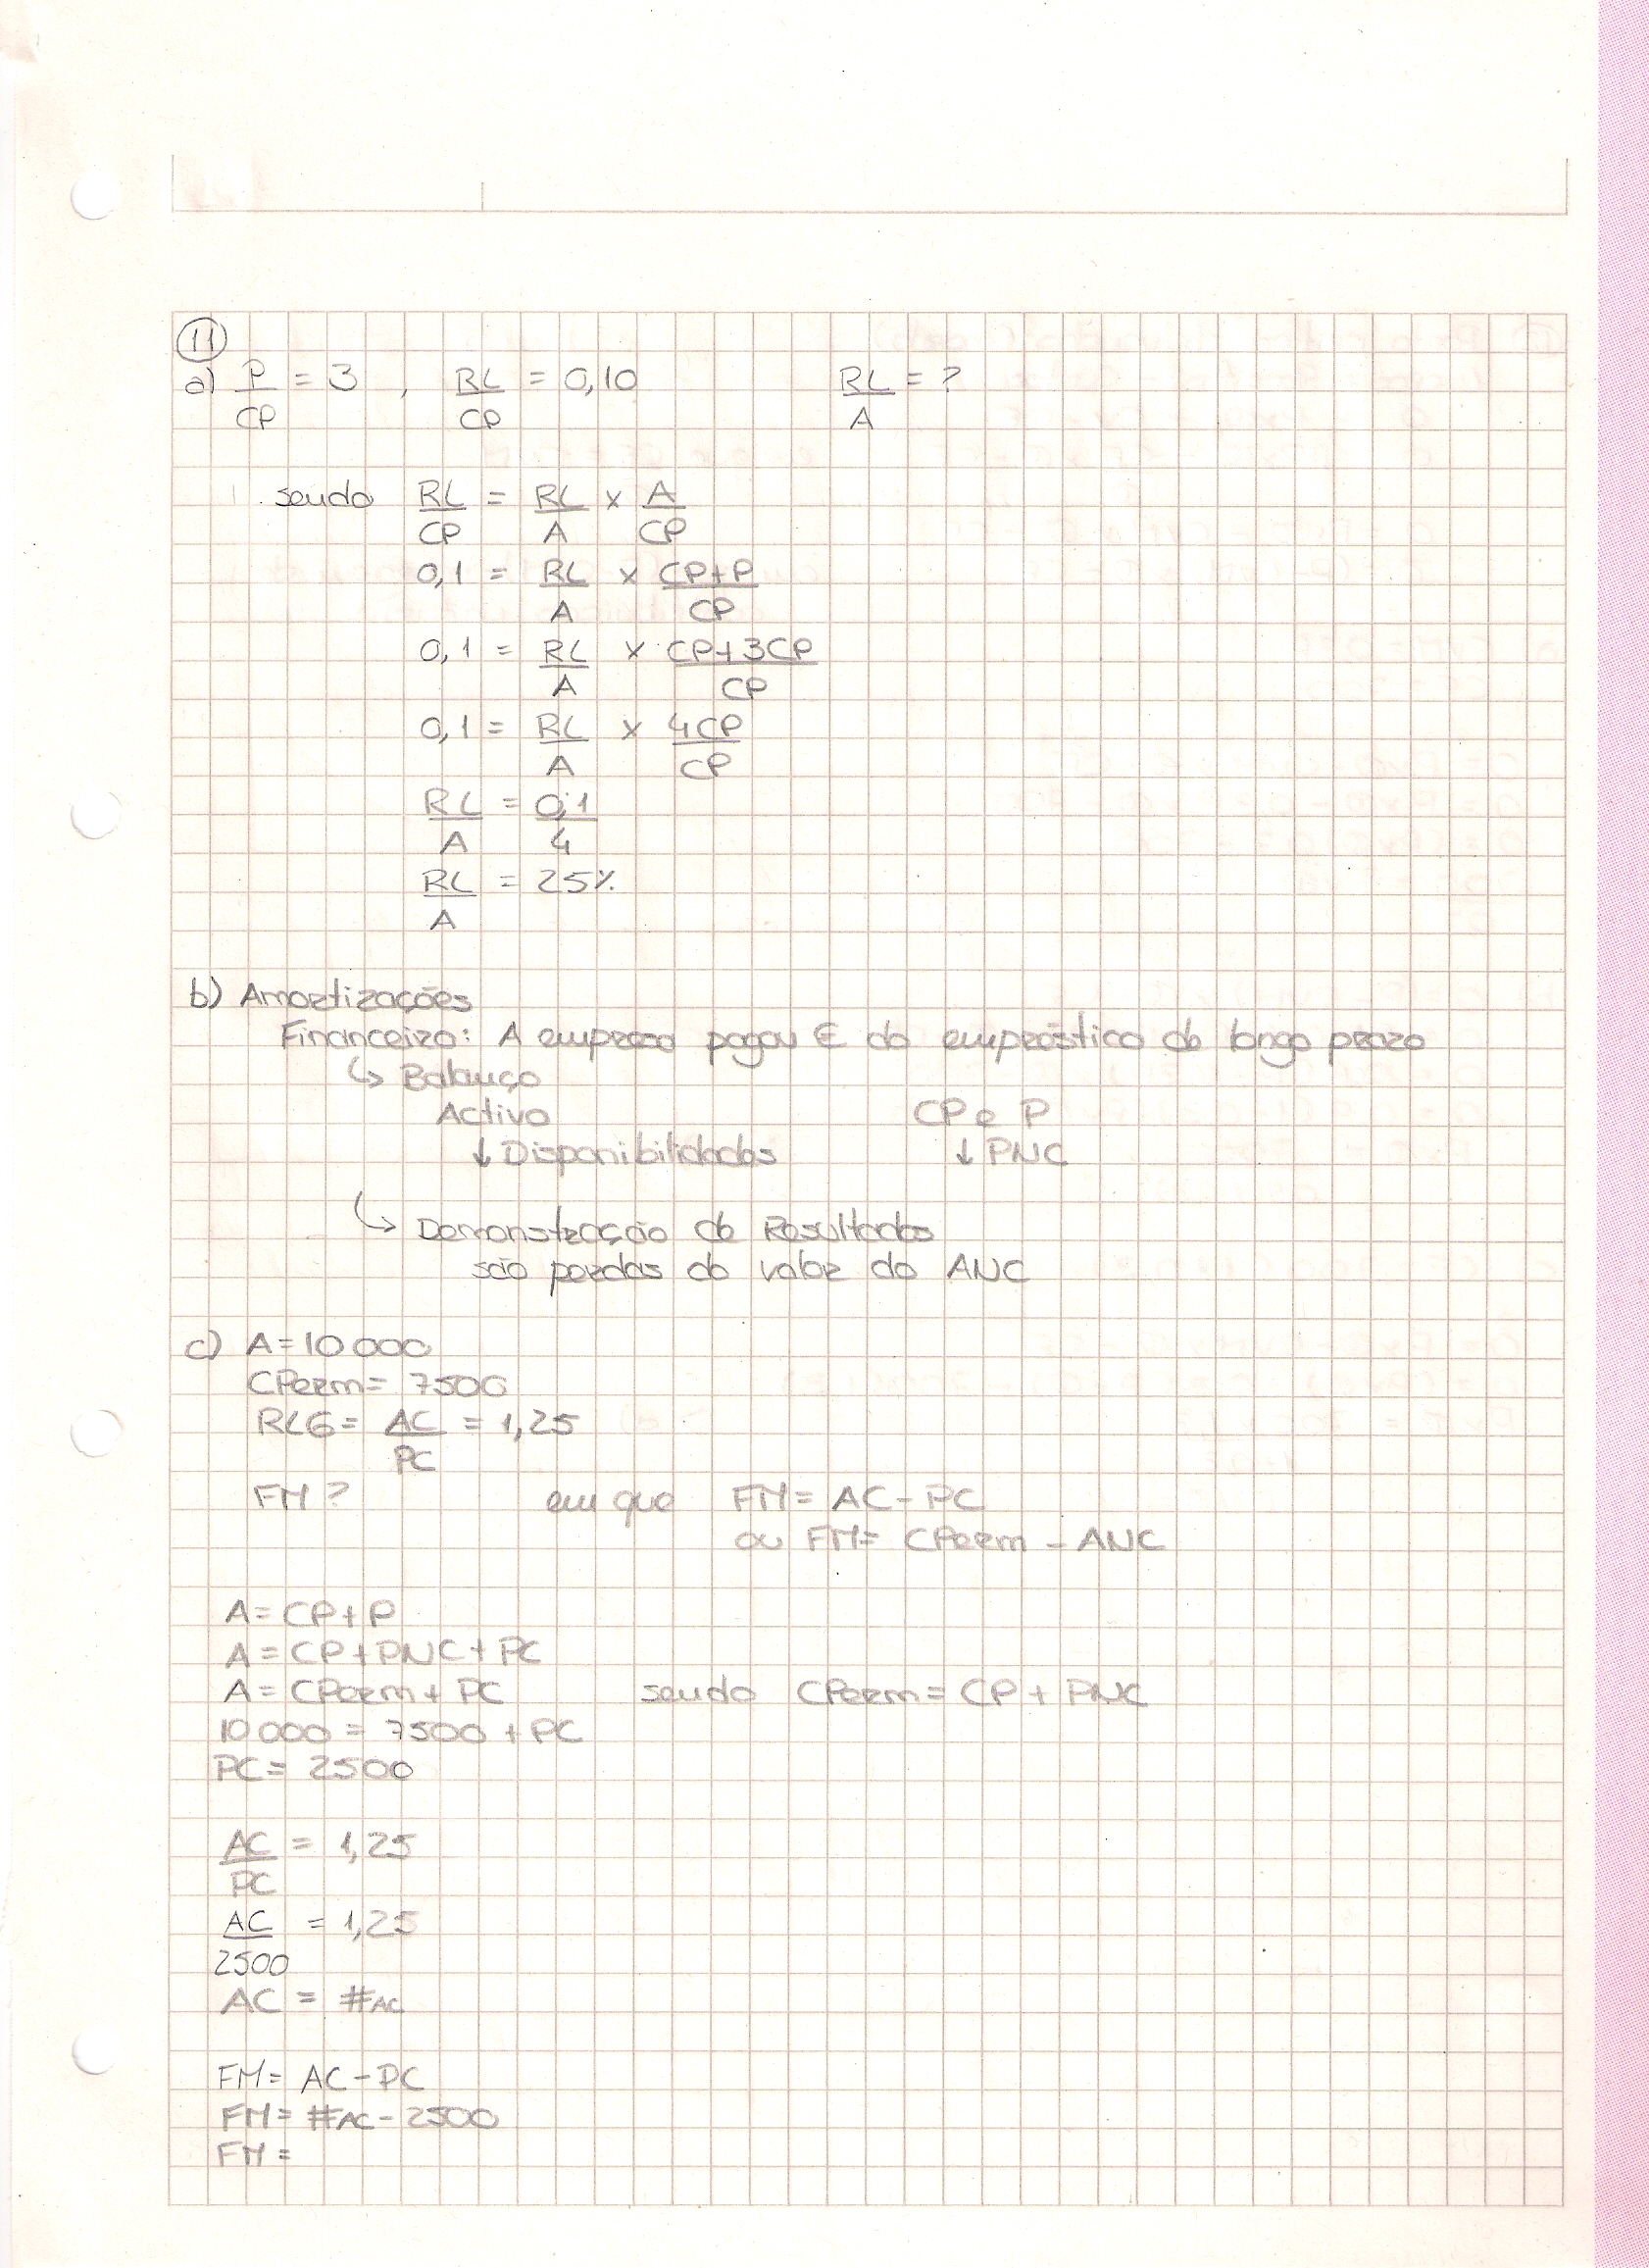 11
a) P/CP = 3 , RL/CP = 0,10 RL/A = ?
sendo RL/CP = RL/A x A/CP
0,1 = RL/A x CP+P/CP
0,1 = RL/A x CP+3CP/CP
0,1 = RL/A x 4CP/CP
RL/A = 0,1/4
RL/A = 25%
b) Amortizações
Financeiro: A empresa pagou € do empréstico de longo prazo
↳ Balanço
Activo CP e P
↓ Disponibilidades ↓ PNC
↳ Demonstração de Resultados
são perdas do valor do ANC
c) A = 10 000
CPerm = 7500
RLG = AC/PC = 1,25
FM ? em que FM = AC - PC
ou FM = CPerm - ANC
A = CP + P
A = CP + PNC + PC
A = CPerm + PC sendo CPerm = CP + PNC
10 000 = 7500 + PC
PC = 2500
AC/PC = 1,25
AC/2500 = 1,25
AC = #AC
FM = AC - PC
FM = #AC - 2500
FM =